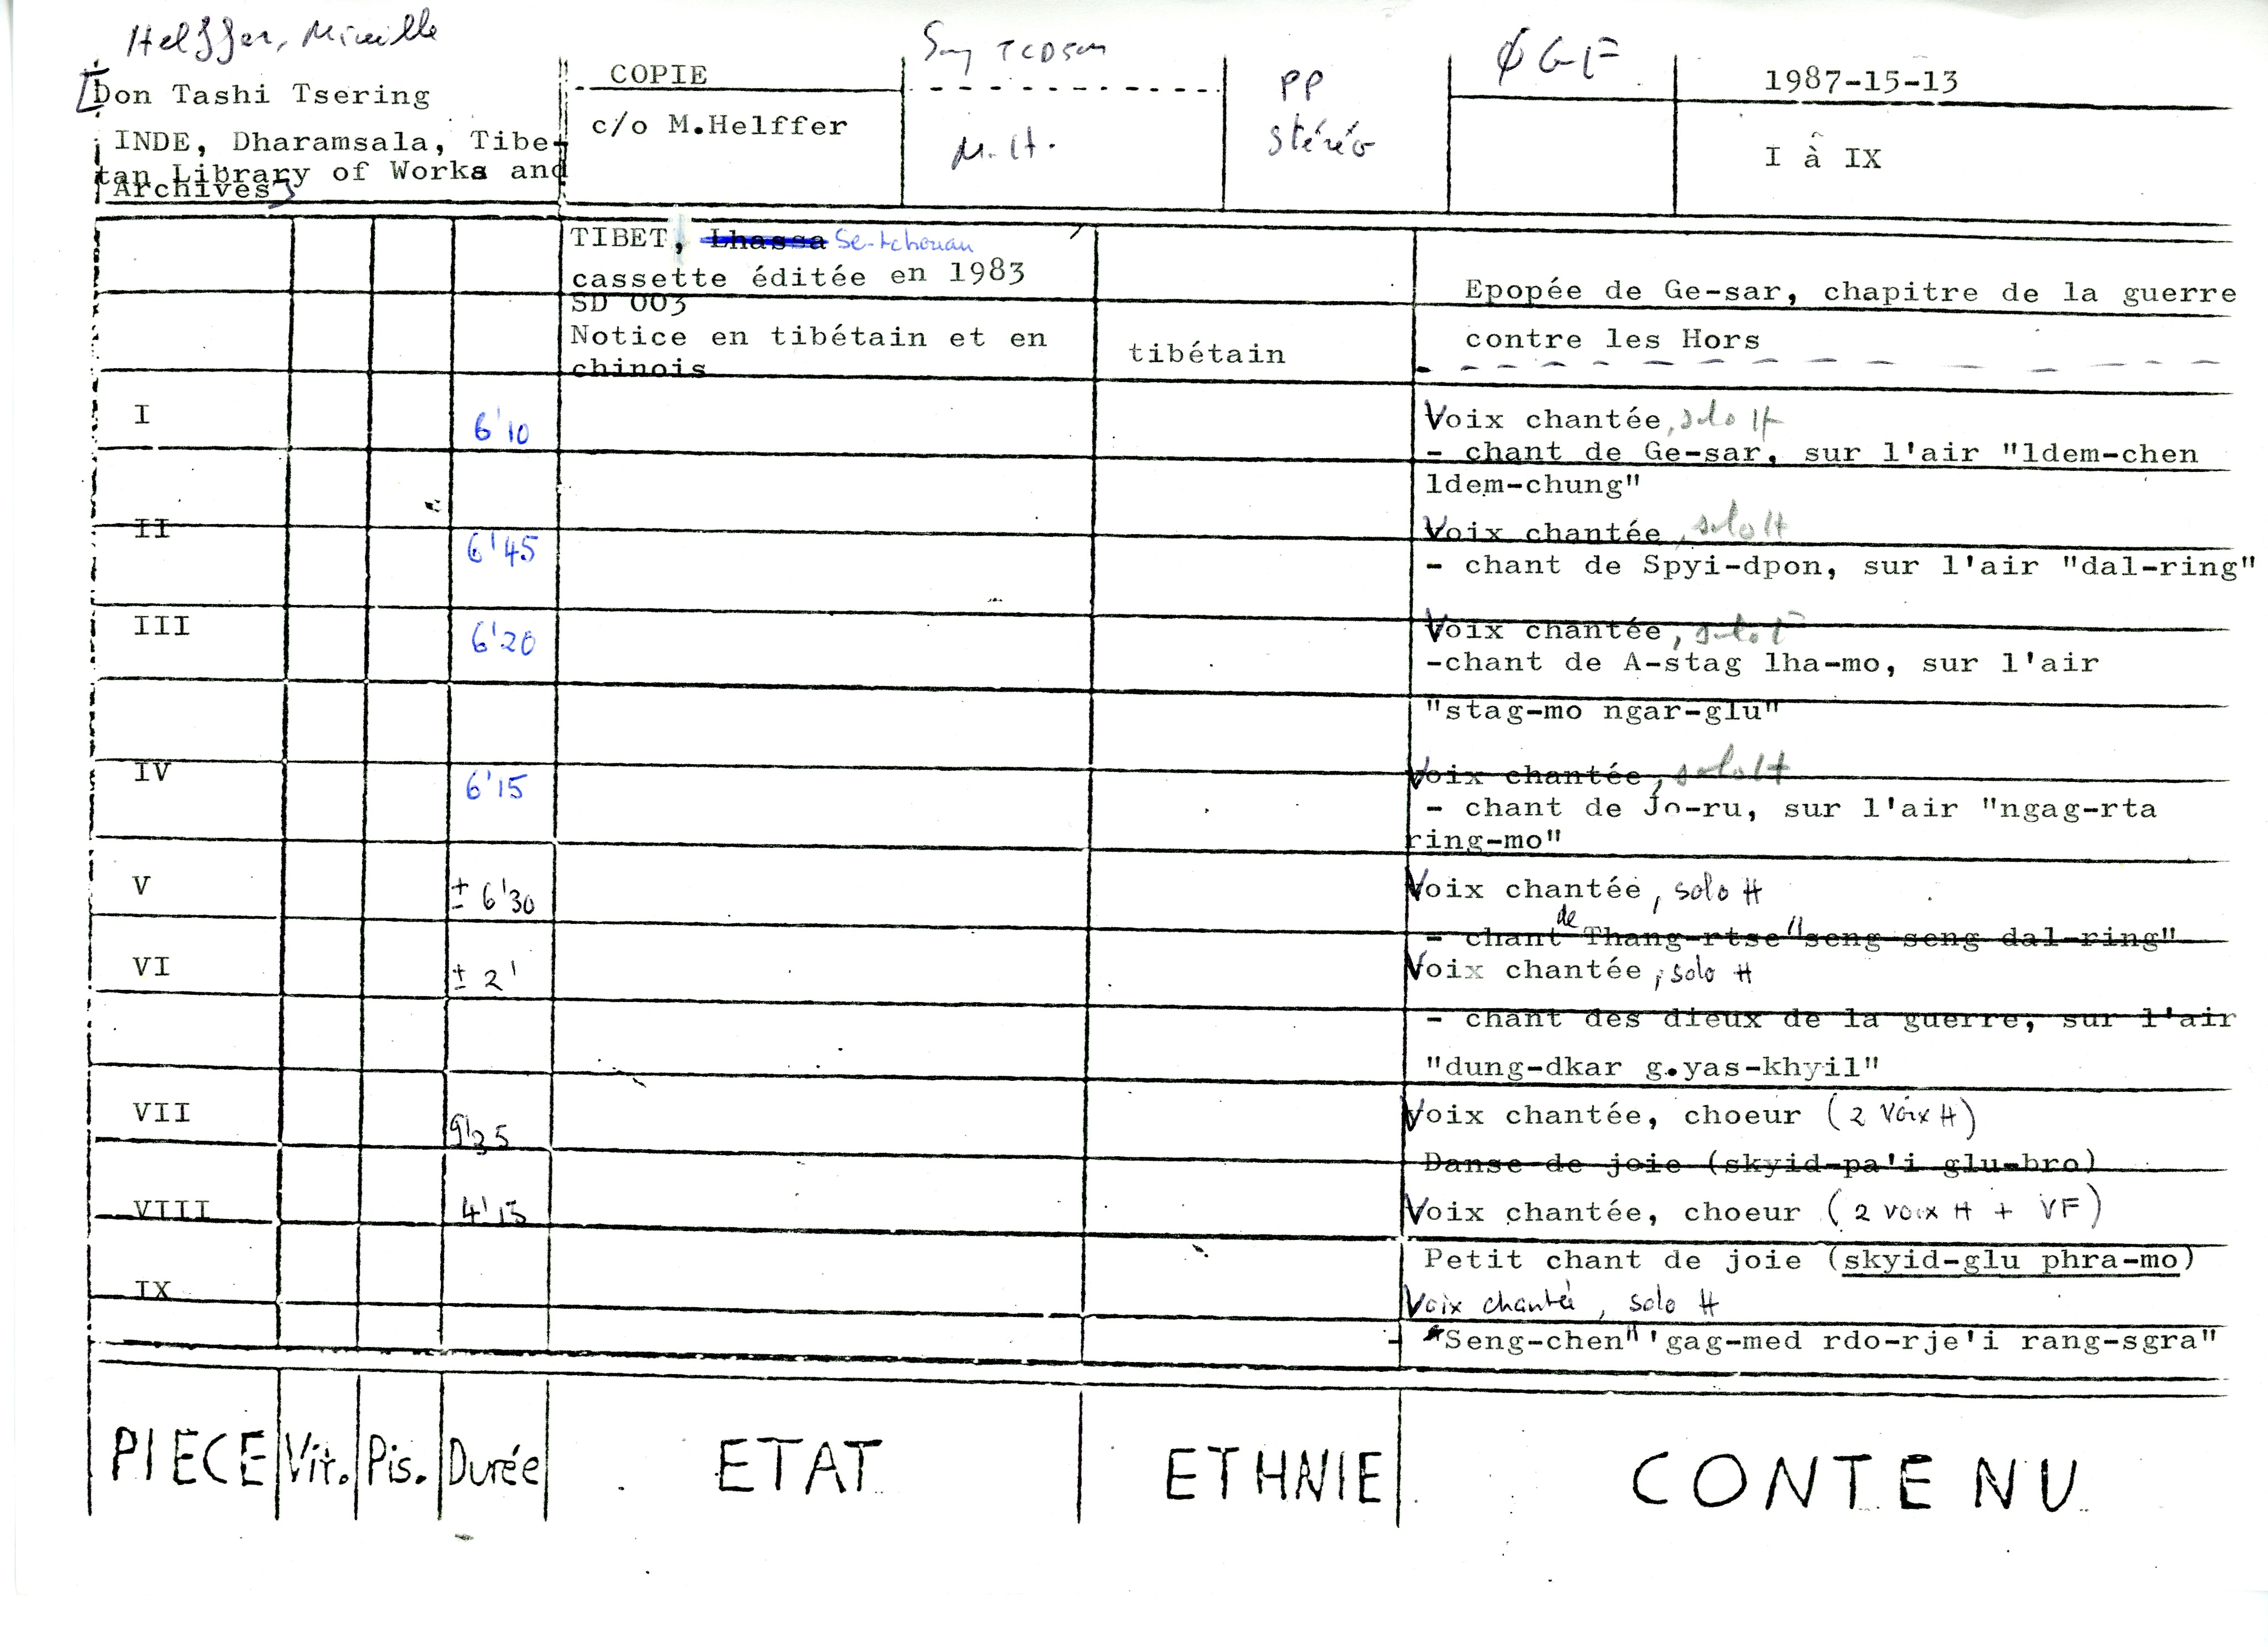 Helffer, Mireille
[Don Tashi Tsering
INDE, Dharamsala, Tibe-
tan Library of Works and
Archives]
COPIE
c/o M.Helffer
Sony TCD5M
M. H.
PP
stéréo
1987-15-13
I à IX
TIBET, Lhassa Se-tchouan
cassette éditée en 1983
SD 003
Notice en tibétain et en
chinois
tibétain
Epopée de Ge-sar, chapitre de la guerre
contre les Hors
I
6'10
Voix chantée, solo H
- chant de Ge-sar, sur l'air "ldem-chen
ldem-chung"
II
6'45
Voix chantée, solo H
- chant de Spyi-dpon, sur l'air "dal-ring"
III
6'20
Voix chantée, solo F
-chant de A-stag lha-mo, sur l'air
"stag-mo ngar-glu"
IV
6'15
Voix chantée, solo H
- chant de Jo-ru, sur l'air "ngag-rta
ring-mo"
V
± 6'30
Voix chantée, solo H
- chant de Thang-rtse "seng-seng dal-ring"
VI
± 2'
Voix chantée, solo H
- chant des dieux de la guerre, sur l'air
"dung-dkar g.yas-khyil"
VII
Voix chantée, choeur (2 voix H)
Danse de joie (skyid-pa'i glu-bro)
VIII
4'15
Voix chantée, choeur (2 voix H + VF)
Petit chant de joie (skyid-glu phra-mo)
IX
Voix chantée, solo H
- "Seng-chen" 'gag-med rdo-rje'i rang-sgra"
PIECE Vit. Pis. Durée ETAT ETHNIE CONTENU